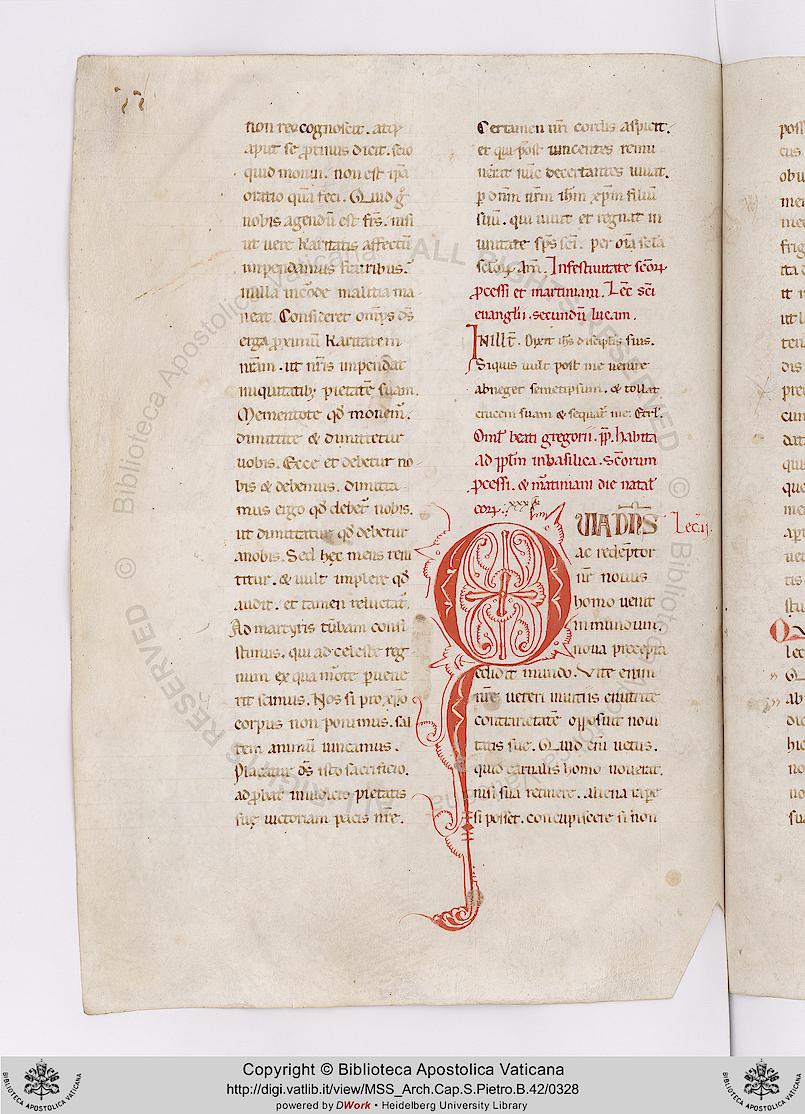 non recognoscit. atq;
aput se protinus dicit. scio
quid monui. non est ipa
oratio quā feci. Quid g̊
nobis agendū est frs. nisi
ut vere karitatis affectū
impendamus fratribus.
nulla in corde malitia ma
neat. Consideret omps ds
erga proximū karitatem
nram. ut nris impendat
iniquitatib; pietatē suam.
Mementote qd monem̄.
dimittite & dimittetur
vobis. Ecce et debetur no
bis & debemus. dimitta
mus ergo qd debet nobis.
ut dimittatur qd debetur
a nobis. Sed hęc mens reni
titur. & vult implere qd
audit. et tamen reluctat.
Ad martyris tūbam consi
stimus. qui ad celeste reg
num ex qua morte puene
rit scimus. Nos si pro xpo
corpus non ponimus. sal
tem animū vincamus.
Placatur ds isto sacrificio.
adprobat in iudicio pietatis
suę victoriam pacis nrę.
Certamen nri cordis aspicit.
et qui post vincentes remu
nerat nūc decertantes iuvat.
p dnm nrm ihm xpm filiū
suū. qui vivit et regnat in
unitate sps sci. per oīa scla
sclorꝝ am̄. In festivitate scorꝝ
pcessi et martiniani. Lec sci
evanglii. secundū lucam.
IN illt̄. Dixit ihs discipłis suis.
Siquis vult post me venire
abneget semetipsum. & tollat
crucem suam & sequat me. Et rl.
Oml beati gregorii. pp. habita
ad pplm in basilica. Scorum
pcessi. & martiniani die natal
eorꝝ. xxxii
QUIA DNS Lec. i.
ac redeptor
nr novus
homo venit
in mundum.
nova precepta
dedit mundo. Vite enim
nrę veteri in vitiis enutritę
contrarietatē opposuit novi
tatis suę. Quid eni vetus.
quid carnalis homo noverat.
nisi sua retinere. aliena rape
si posset. concupiscere si non
ALL RIGHTS RESERVED © Biblioteca Apostolica Vaticana
Copyright © Biblioteca Apostolica Vaticana
http://digi.vatlib.it/view/MSS_Arch.Cap.S.Pietro.B.42/0328
powered by DWork • Heidelberg University Library
BIBLIOTECA APOSTOLICA VATICANA
BIBLIOTECA APOSTOLICA VATICANA